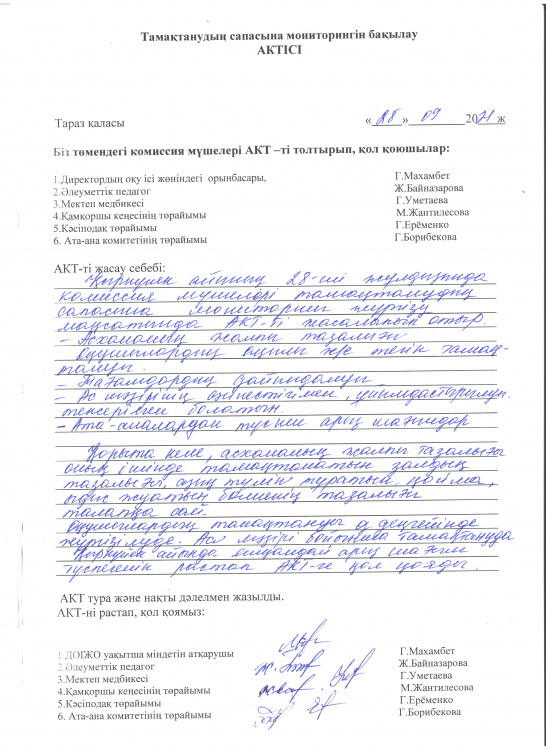 Тамақтанудың сапасына мониторингін бақылау
АКТІСІ
Тараз қаласы «28» 09 2021 ж
Біз төмендегі комиссия мүшелері АКТ –ті толтырып, қол қоюшылар:
1.Директордың оқу ісі жөніндегі орынбасары, Г.Махамбет
2.Әлеуметтік педагог Ж.Байназарова
3.Мектеп медбикесі Г.Уметаева
4.Қамқоршы кеңесінің төрайымы М.Жантилесова
5.Кәсіподақ төрайымы Г.Ерёменко
6. Ата-ана комитетінің төрайымы Г.Борибекова
АКТ-ті жасау себебі:
Қыркүйек айының 28-ші жұлдызында
комиссия мүшелері тамақтанудың
сапасына мониторинг жүргізу
мақсатында АКТ-ті жасалынып отыр.
- Асхананың жалпы тазалығы
Оқушылардың ақылы және тегін тамақ-
тануы.
- Тағамдардың дайындалуы
- Ас мәзірінің
теңсерілген болатын.
- Ата-аналардан түскен арыз шағымдар
Қорыта келе, асхананың жалпы тазалығы
оның ішінде тамақтанатын залдың
тазалығы, азық түлік тұратын қойма,
ыдыс жуатын бөлменің тазалығы
талапқа сай.
Оқушылардың тамақтануы өз деңгейінде
жүргізілуде. Ас мәзірі бойынша тамақтануда
Қыркүйек айында ешқандай арыз шағым
түспегенін растап АКТ-ге қол қояды.
АКТ тура және нақты дәлелмен жазылды.
АКТ-ні растап, қол қоямыз:
1.ДОІЖО уақытша міндетін атқарушы Г.Махамбет
2.Әлеуметтік педагог Ж.Байназарова
3.Мектеп медбикесі Г.Уметаева
4.Қамқоршы кеңесінің төрайымы М.Жантилесова
5.Кәсіподақ төрайымы Г.Ерёменко
6. Ата-ана комитетінің төрайымы Г.Борибекова